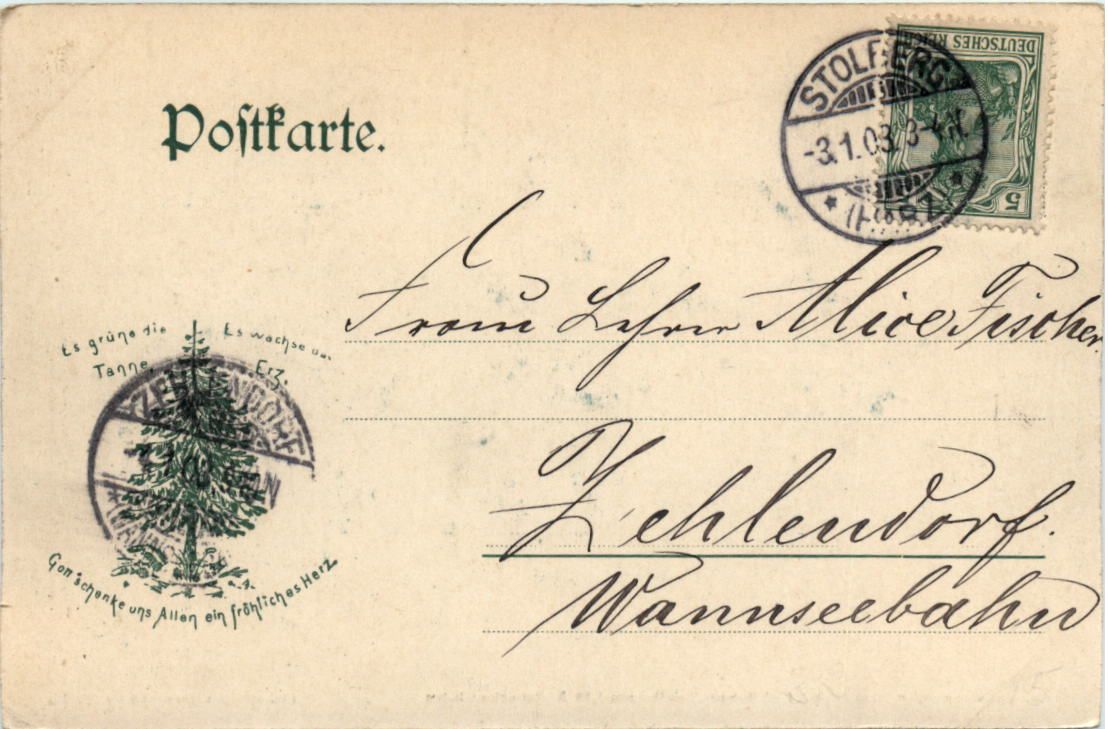 Postkarte.
DEUTSCHES REICH
5
STOLBERG
-3.1.03. 3-4N.
* (HARZ) *
Frau Lehrer Alice Fischer.
Zehlendorf.
Wannseebahn
Es grüne die
Tanne,
Es wachse das
Erz.
Gott schenke uns Allen ein fröhliches Herz.
ZEHLENDORF